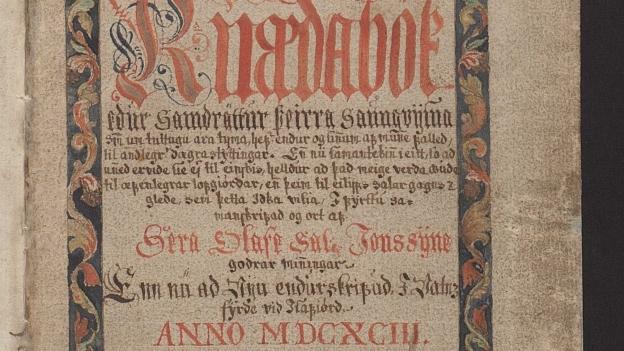 Kvædabók
edur Samdráttur þeirra Saungvijsna
Sem um tuttugu ara tyma, hefr endur og sinum af munne falled,
til andlegr dægrastyttingar. En nu samanteken i eitt, so ad
ervide sie ej til einskis, helldur ad það meige verda Gude
til æfenlegrar lofgiördar, en þeim til eilifs salar gagns &
glede, sem þetta Idka vilia, I fyrstu sa-
manskrifad og ort af
Sera Olafe Sal. Jonssyne
godrar minningar
Enn nu ad Nyu endurskrifad I Vatns-
fyrde vid Isafiord
ANNO MDCXCIII.